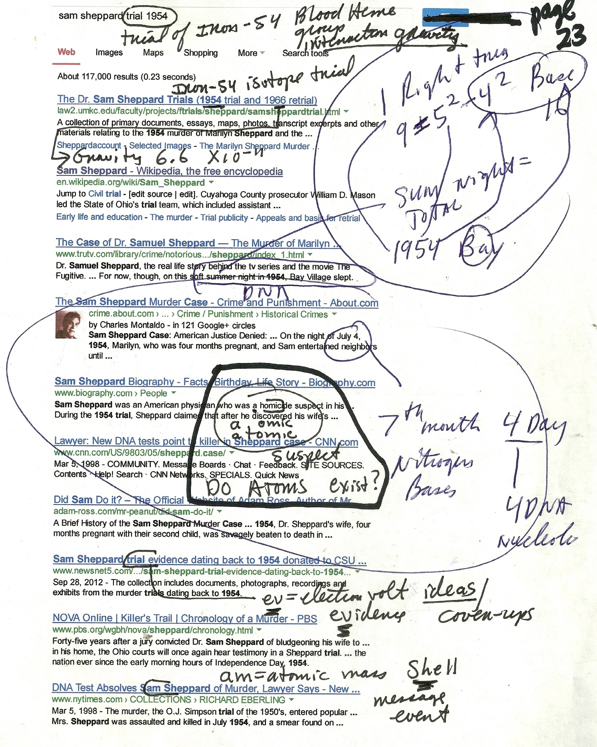 sam sheppard trial 1954
Blood Heme
group
page
23
trial of Iron-54
interaction gravity
Web Images Maps Shopping More Search tools
About 117,000 results (0.23 seconds)
Iron-54 isotope trial
The Dr. Sam Sheppard Trials (1954 trial and 1966 retrial)
law2.umkc.edu/faculty/projects/ftrials/sheppard/samsheppardtrial.html
A collection of primary documents, essays, maps, photos, transcript excerpts and other
materials relating to the 1954 murder of Marilyn Sheppard and the ...
Sheppardaccount - Selected Images - The Marilyn Sheppard Murder
Gravity 6.6 X10-11
Sam Sheppard - Wikipedia, the free encyclopedia
en.wikipedia.org/wiki/Sam_Sheppard
Jump to Civil trial - [edit source | edit]. Cuyahoga County prosecutor William D. Mason
led the State of Ohio's trial team, which included assistant ...
Early life and education - The murder - Trial publicity - Appeals and basis for retrial
1 Right
9 ± 5² - 4² Base
16
Sum night =
Total
1954 Bay
The Case of Dr. Samuel Sheppard — The Murder of Marilyn ...
www.trutv.com/library/crime/notorious.../sheppard/index_1.html
Dr. Samuel Sheppard, the real life story behind the tv series and the movie The
Fugitive. ... For now, though, on this soft summer night in 1954, Bay Village slept.
DNA
The Sam Sheppard Murder Case - Crime and Punishment - About.com
crime.about.com › ... › Crime / Punishment › Historical Crimes
by Charles Montaldo - in 121 Google+ circles
Sam Sheppard Case: American Justice Denied: ... On the night of July 4,
1954, Marilyn, who was four months pregnant, and Sam entertained neighbors
until ...
Sam Sheppard Biography - Facts, Birthday, Life Story - Biography.com
www.biography.com › People
Sam Sheppard was an American physician who was a homicide suspect in his ...
During the 1954 trial, Sheppard claimed that after he discovered his wife's ...
a iomic
atomic
Lawyer: New DNA tests point to killer in Sheppard case - CNN.com
www.cnn.com/US/9803/05/sheppard.case/
suspect
Mar 5, 1998 - COMMUNITY. Message Boards · Chat · Feedback. SITE SOURCES.
Contents · Help! Search · CNN Networks. SPECIALS. Quick News
Do Atoms exist?
7th month 4 Day
Nitrogen
Bases
4 DNA
Did Sam Do it? – The Official Website of Adam Ross, Author of Mr.
adam-ross.com/mr-peanut/did-sam-do-it/
A Brief History of the Sam Sheppard Murder Case ... 1954, Dr. Sheppard's wife, four
months pregnant with their second child, was savagely beaten to death in ...
Sam Sheppard trial evidence dating back to 1954 donated to CSU ...
www.newsnet5.com/.../sam-sheppard-trial-evidence-dating-back-to-1954...
Sep 28, 2012 - The collection includes documents, photographs, recordings and
exhibits from the murder trials dating back to 1954.
ev = election volt ideas/
evidence coven-ups
NOVA Online | Killer's Trail | Chronology of a Murder - PBS
www.pbs.org/wgbh/nova/sheppard/chronology.html
Forty-five years after a jury convicted Dr. Sam Sheppard of bludgeoning his wife to ...
in his home, the Ohio courts will once again hear testimony in a Sheppard trial. ... the
nation ever since the early morning hours of Independence Day, 1954.
am = atomic mass Shell
DNA Test Absolves Sam Sheppard of Murder, Lawyer Says - New ...
www.nytimes.com › COLLECTIONS › RICHARD EBERLING
message
event
Mar 5, 1998 - The murder, the O.J. Simpson trial of the 1950's, entered popular ...
Mrs. Sheppard was assaulted and killed in July 1954, and a smear found on ...